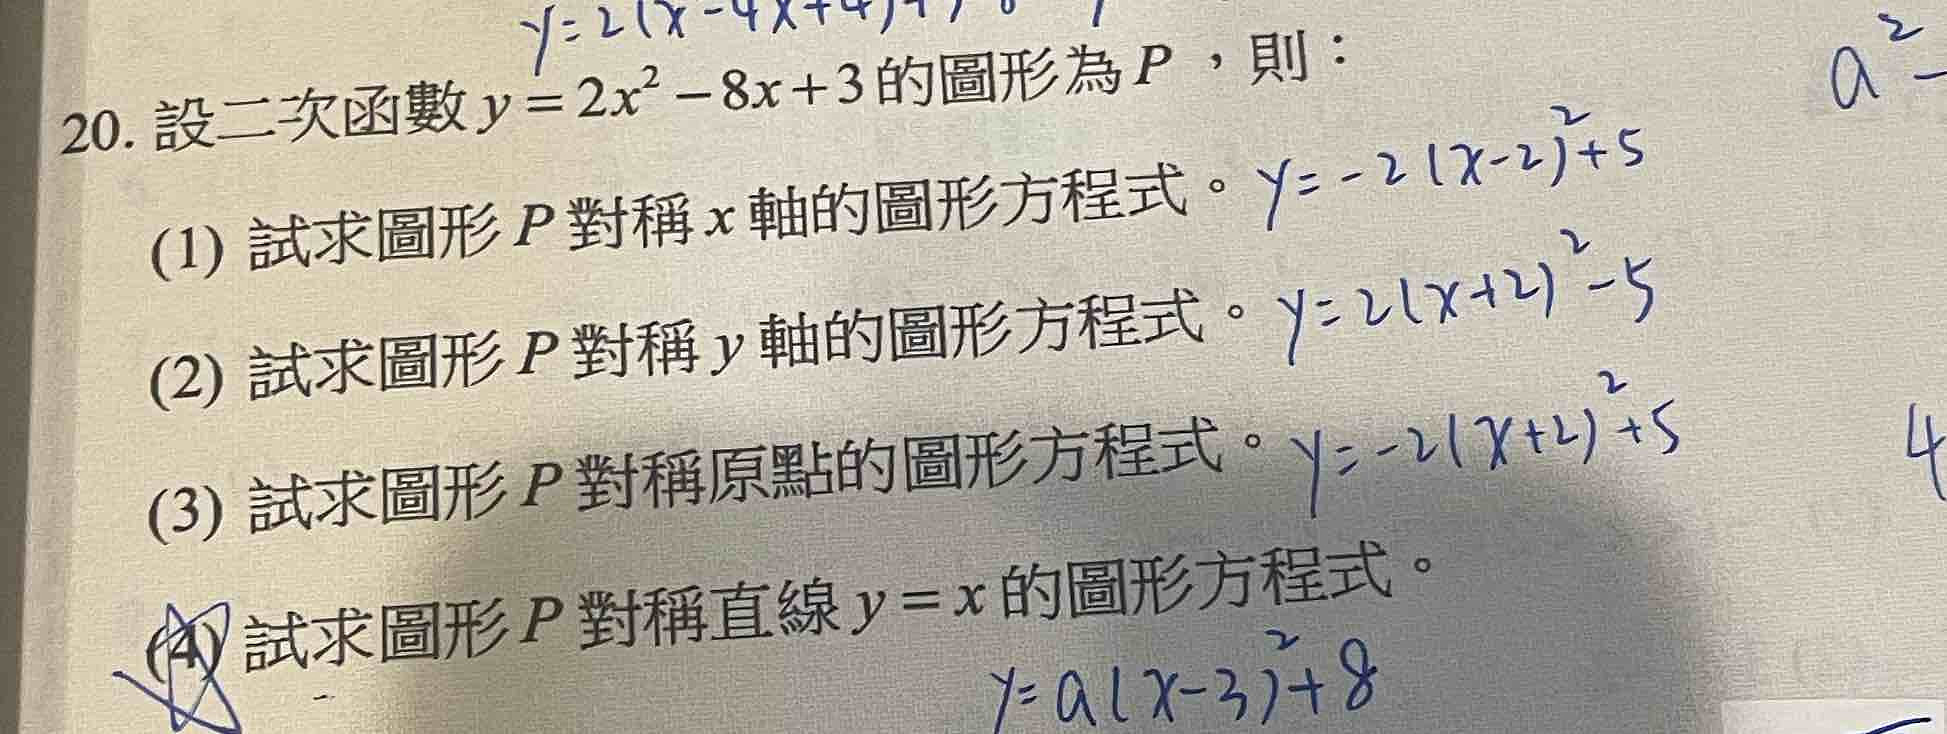 y=2(x-4x+4)+
20. 設二次函數 y = 2x² − 8x + 3 的圖形為 P ，則：
a²-
(1) 試求圖形 P 對稱 x 軸的圖形方程式。 y=-2(x-2)²+5
(2) 試求圖形 P 對稱 y 軸的圖形方程式。 y=2(x+2)²-5
(3) 試求圖形 P 對稱原點的圖形方程式。 y=-2(x+2)²+5
4
(4) 試求圖形 P 對稱直線 y = x 的圖形方程式。
y=a(x-3)²+8